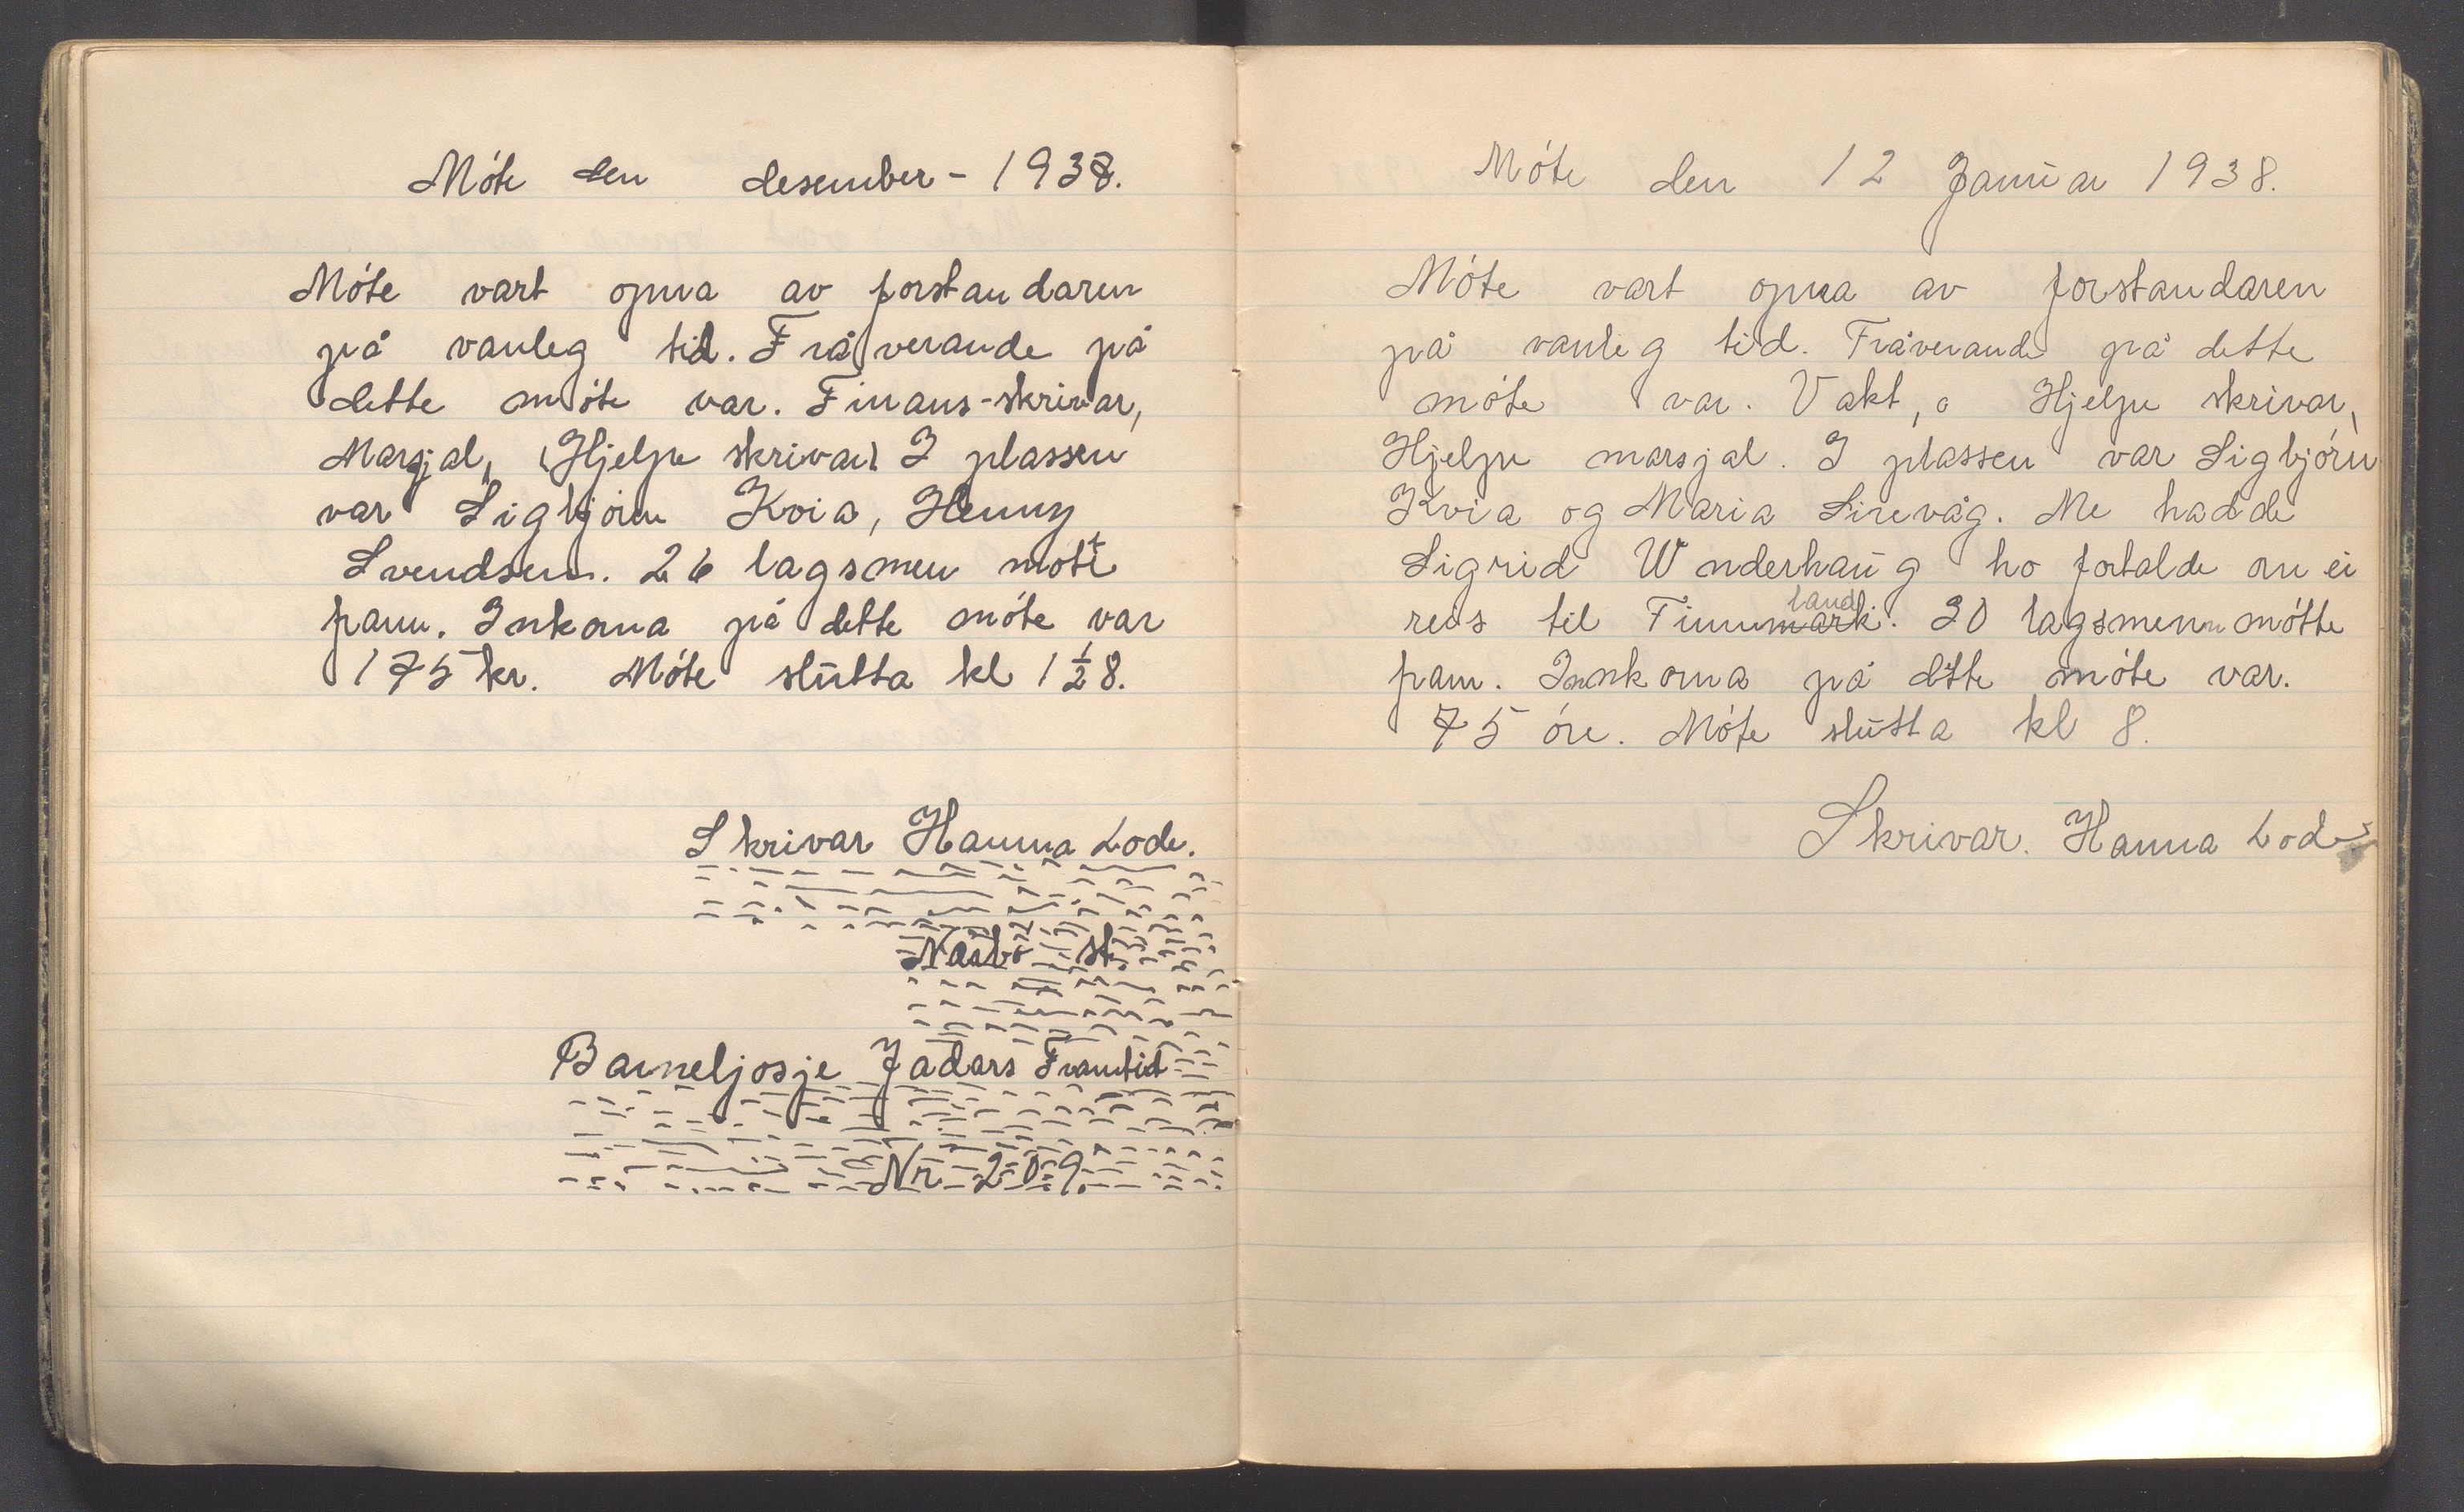 Móte den desember - 1938.
Móte vart opna av forstandaren
på vanleg tid. Fråverande på
dette móte var. Finans-skrivar,
Marsjal, (Hjelpe skrivar) I plassen
var Sigbjórn Kvia, Henny
Svendsen. 26 lagsmen mótte
fram. Inkoma på dette móte var
175 kr. Móte slutta kl 1 1/2 8.
Skrivar Hanna Lode.
Nærbø st
Barneljosje Jadars Framtid
Nr 209
Móte den 12 Januar 1938.
Móte vart opna av forstandaren
på vanleg tid. Fråverande på dette
móte var. Vakt, o Hjelpe skrivar,
Hjelpe marsjal. I plassen var Sigbjórn
Kvia og Maria Sirevåg. Me hadde
Sigrid Wnderhaug ho fortalde om ei
reis til Finnmark land. 30 lagsmenn mótte
fram. Innkoma på dette móte var.
75 óre. Móte slutta kl 8.
Skrivar. Hanna Lode